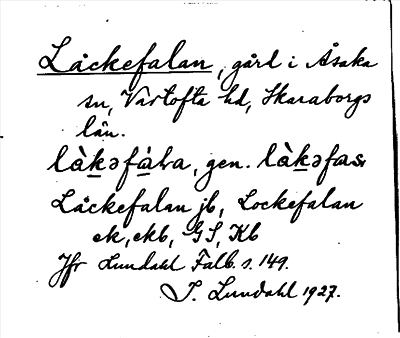 Låckefalan, gård i Åsaka
sn, Vartofta hd, Skaraborgs
län.
làkəfàlra, gen. làkəfas
Låckefalan jb, Lockefalan
ek, ekb, GS, Kb
Jfr Lundahl Falb. s. 149.
I. Lundahl 1927.